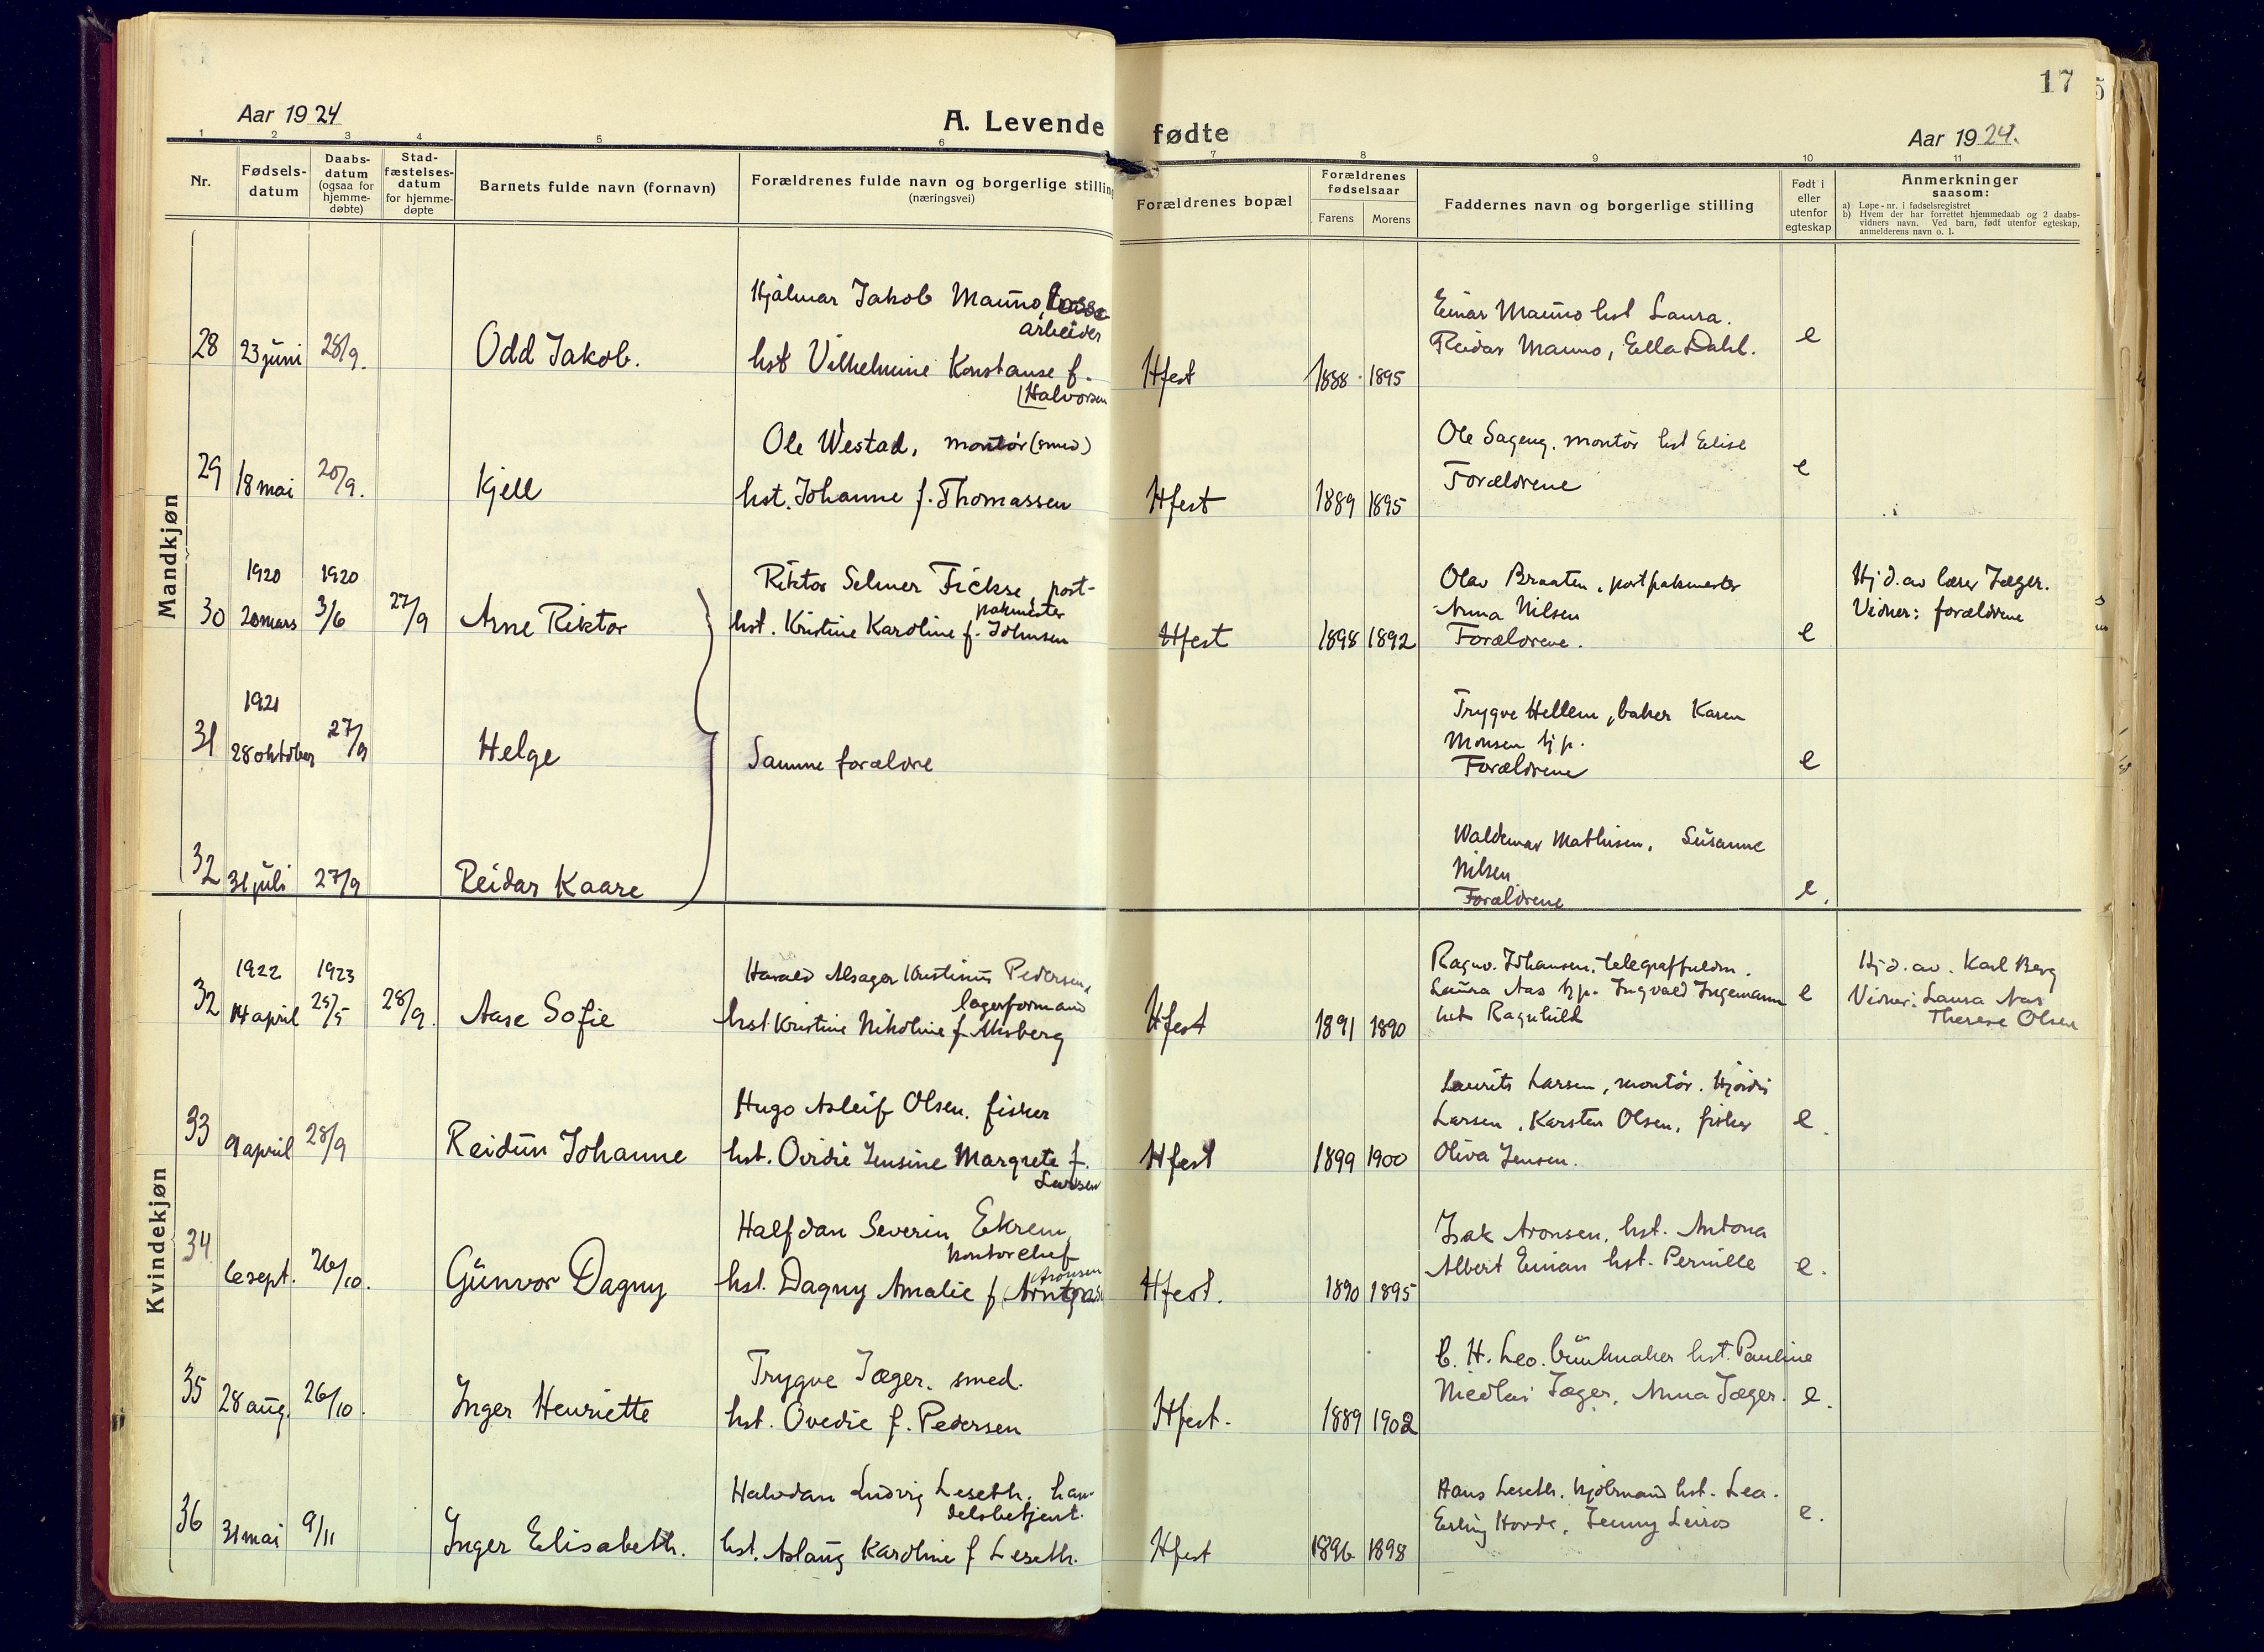 Aar 1924
A. Levende fødte
17
Aar 1924.
1 2 3 4 5 6 7 8 9 10 11
Nr.
Fødsels-
datum
Daabs-
datum
(ogsaa for
hjemme-
døbte)
Stad-
fæstelses-
datum
for hjemme-
døpte
Barnets fulde navn (fornavn)
Forældrenes fulde navn og borgerlige stilling
(næringsvei)
Forældrenes bopæl
Forældrenes
fødselsaar
Farens Morens
Faddernes navn og borgerlige stilling
Født i
eller
utenfor
egteskap
Anmerkninger
saasom:
a) Løpe-nr. i fødselsregistret
b) Hvem der har forrettet hjemmedaab og 2 daabs-
vidners navn. Ved barn, født utenfor egteskap,
anmelderens navn o. l.
Mandkjøn
Hjalmar Jakob Mauno,
arbeider
28 23 juni 28/9. Odd Jakob. hst Vilhelmine Konstanse f.
Halvorsen
Hfest 1888 1895
Einar Mauno hst Laura.
Reidar Mauno, Ella Dahl. e
Ole Westad, montør (smed)
29 18 mai 20/9. Kjell hst. Johanne f. Thomassen
Hfest 1889 1895
Ole Sageng, montør hst Elise
Forældrene e
1920 1920
30 20 mars 3/6 27/9 Arne Riktor
Riktor Selmer Fickse, post-
pakmester
hst. Kristine Karoline f. Johnsen
Hfest 1898 1892
Olav Braaten, postpakmester
Anna Nilsen
Forældrene. e
Hj d. av lærer Jæger.
Vidner: forældrene
1921
31 28 oktober 27/9 Helge Samme forældre
Trygve Hellem, baker Karen
Monsen hj p.
Forældrene e
32 31 juli 27/9 Reidar Kaare
Waldemar Mathisen, Susanne
Nilsen
Forældrene e.
Kvindekjøn
1922 1923
32 14 april 25/5 28/9. Aase Sofie
Harald Alsager Kristinus Pedersen,
lagerformand
hst Kristine Nikoline f. Misberg
Hfest 1891 1890
Ragnv. Johansen, telegraffuldm.
Laura Aas hj p. Ingvald Ingemann e
hst Ragnhild
Hj d. av. Karl Berg
Vidner: Laura Aas
Therese Olsen
Hugo Asleif Olsen, fisker
33 9 april 28/9 Reidun Johanne hst. Ovidie Jensine Margrete f.
Larsen
Hfest 1899 1900
Laurits Larsen, montør. Hjørdis
Larsen, Karsten Olsen, fisker e.
Oliva Jensen.
Halfdan Severin Ekrem,
kontorchef
34 6 sept. 26/10. Gunvor Dagny hst. Dagny Amalie f.
Aronsen
Hfest. 1890 1895
Isak Aronsen, hst. Antona
Albert Einan hst. Pernille e.
Trygve Jæger, smed.
35 28 aug. 26/10. Inger Henriette hst. Ovedie f. Pedersen
Hfest. 1889 1902
C. H. Leo. buntmaker hst. Pauline
Nicolai Jæger, Anna Jæger. e.
Halvdan Ludvig Leseth, han-
delsbetjent.
36 31 mai 9/11 Inger Elisabeth. hst. Aslaug Karoline f Leseth.
Hfest 1896 1898
Hans Leseth, kjølmand hst. Lea.
Erling Hovde, Jenny Leiros e.